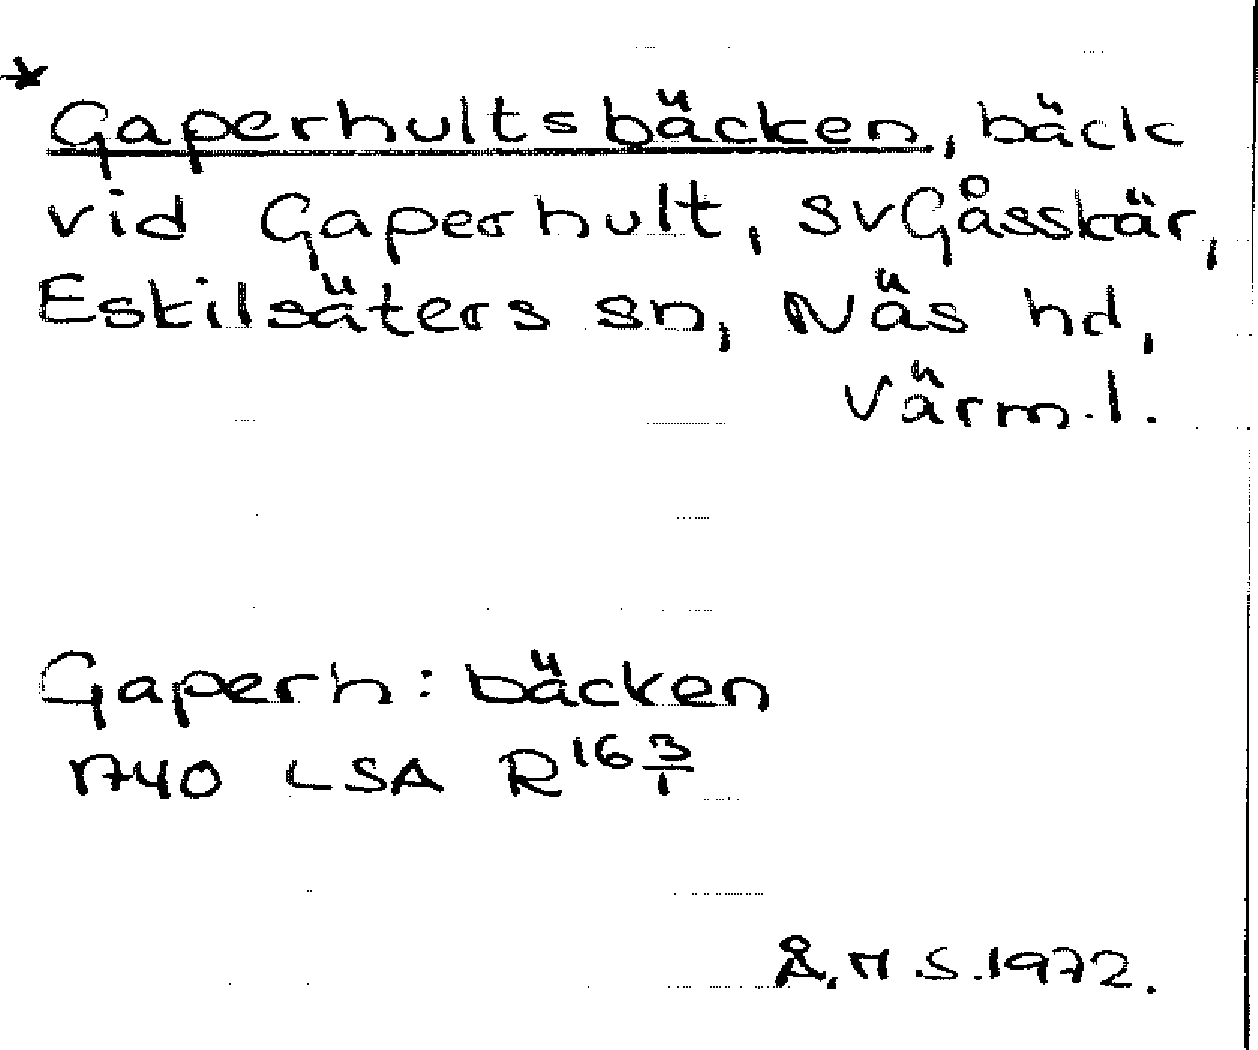 * Gaperhultsbäcken, bäck
vid Gaperhult, sv Gåsskär,
Eskilsäters sn, Näs hd,
Värml.
Gaperh:bäcken
1740 LSA R16 3/1
Å.H.S.1972.